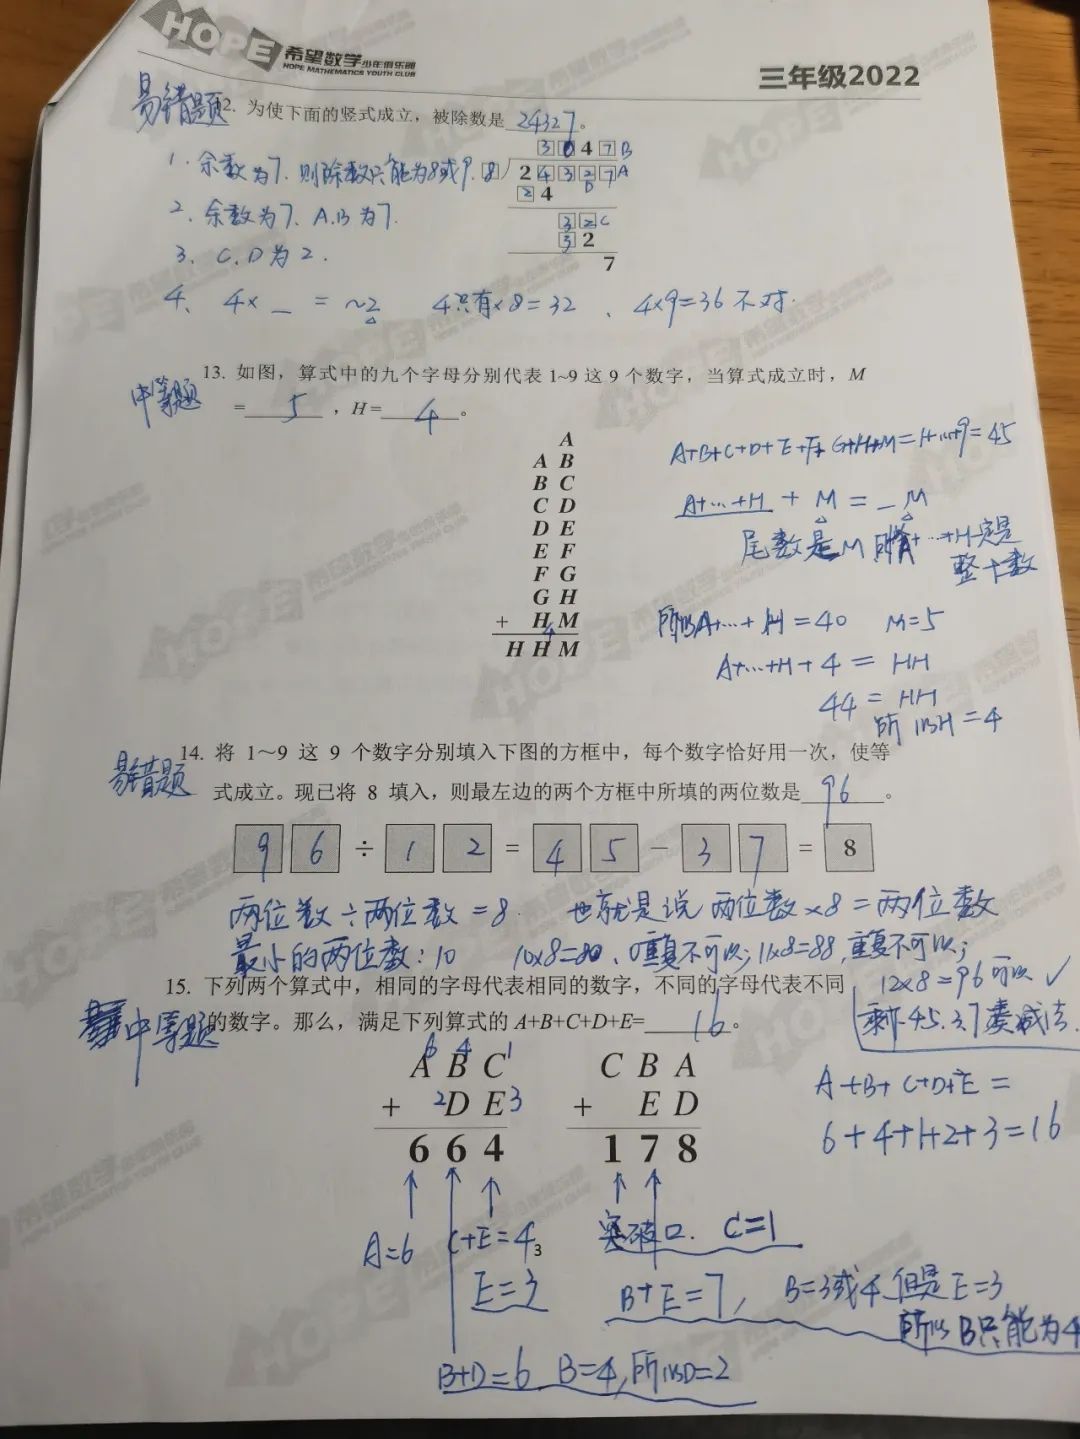 HOPE 希望数学少年俱乐部
HOPE MATHEMATICS YOUTH CLUB
三年级2022
易错题 2. 为使下面的竖式成立，被除数是 24327。
3 0 4 7 B
1. 余数为7，则除数只能为8或9. 8 2 4 3 2 7 A
D
2 4
2. 余数为7、A.B 为7.
3 2 C
3 2
3、C、D为2.
7
4、4×_=~2 4只有×8=32、4×9=36不对.
中等题 13. 如图，算式中的九个字母分别代表 1~9 这 9 个数字，当算式成立时，M
= 5 ，H= 4 。
A
A B
B C
C D
D E
E F
F G
G H
+ H M
4
H H M
A+B+C+D+E+F+G+H+M=1+…+9=45
A+…+H + M = _M
尾数是M 所以A+…+H一定是
整十数
所以A+…+H=40 M=5
A+…+H+4 = HH
44 = HH
所以H=4
易错题 14. 将 1～9 这 9 个数字分别填入下图的方框中，每个数字恰好用一次，使等
式成立。现已将 8 填入，则最左边的两个方框中所填的两位数是 96 。
9 6 ÷ 1 2 = 4 5 − 3 7 = 8
两位数÷两位数=8. 也就是说 两位数×8=两位数
最小的两位数：10 10×8=80、0重复不可以；11×8=88,重复不可以；
12×8=96可以 ✓
剩下4.5.3.7凑减法.
15. 下列两个算式中，相同的字母代表相同的数字，不同的字母代表不同
中等题 的数字。那么，满足下列算式的 A+B+C+D+E= 16 。
6 4 1
A B C C B A
+ 2D E3 + E D
6 6 4 1 7 8
A+B+C+D+E=
6+4+1+2+3=16
A=6 C+E=4 3 突破口. C=1
E=3 B+E=7, B=3或4 但是E=3
所以B只能为4
B+D=6 B=4,所以D=2